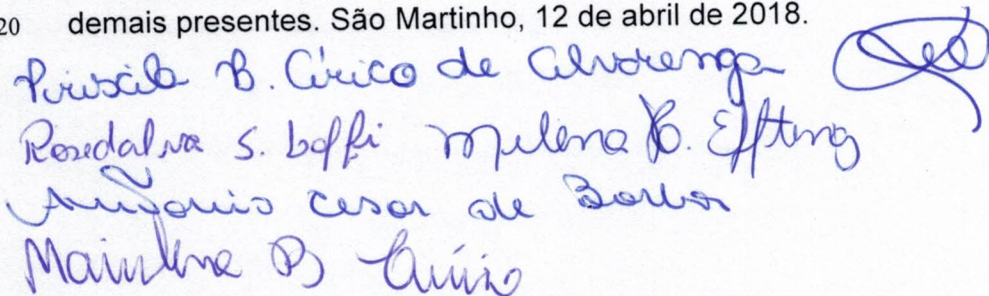 20 demais presentes. São Martinho, 12 de abril de 2018.
Priscila B. Círico de Alvarenga
Rosedalva S. Loffi Milena B. Effting
Antônio Cesar de
B